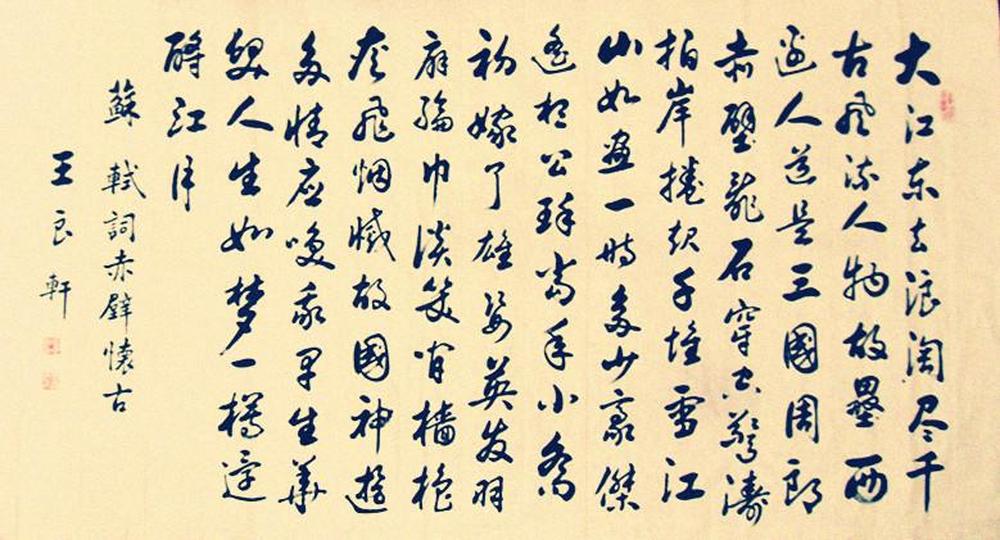 大江东去浪淘尽千
古風流人物故壘西
邊人道是三國周郎
赤壁亂石穿空驚濤
拍岸捲起千堆雪江
山如畫一時多少豪傑
遙想公瑾當年小喬
初嫁了雄姿英发羽
扇綸巾談笑间檣櫓
灰飛烟滅故國神遊
多情应咲我早生華
髮人生如梦一樽還
酹江月
蘇軾詞赤壁懷古
王良軒